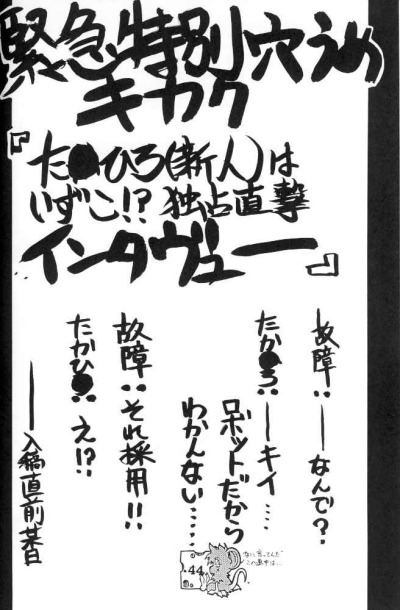 緊急特別穴うめ
キカク
『た●ひろ(新人)は
いずこ!? 独占直撃
インタヴュー』
―故障：―なんで？
たか●ろ：―キイ……
ロボットだから
わかんない……
故障：それ採用！！
たかひ●：え！？
――入稿直前某日
.44